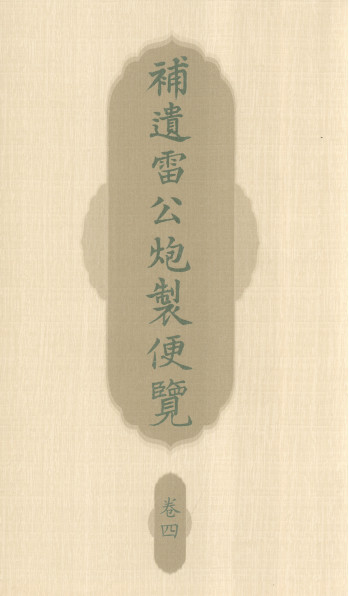 補遺雷公炮製便覽
卷四